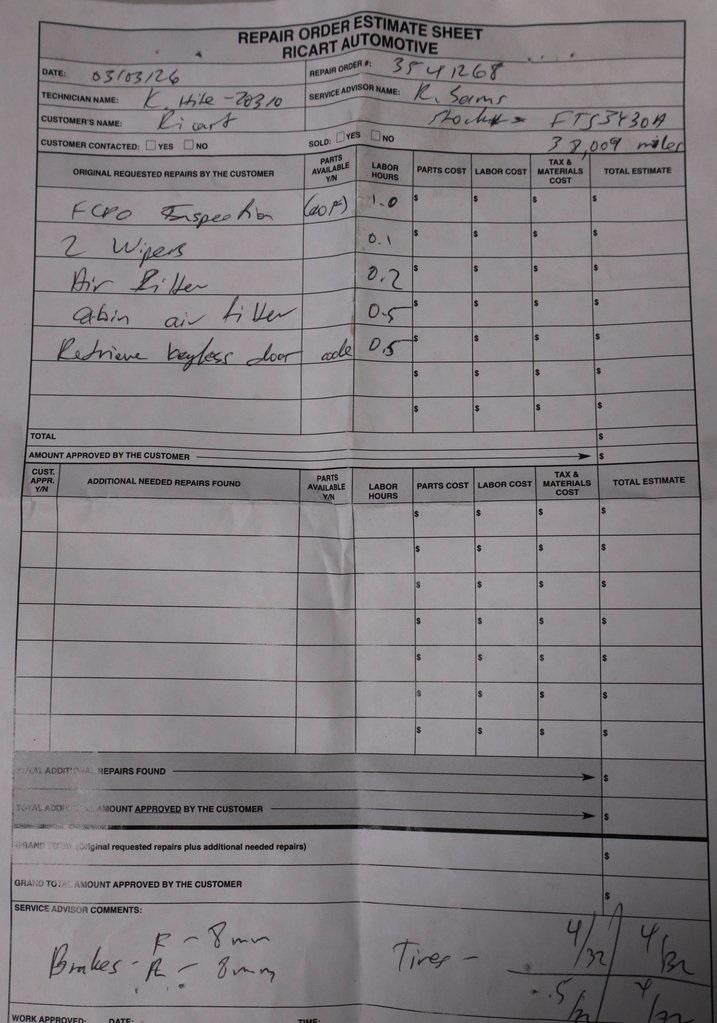 REPAIR ORDER ESTIMATE SHEET
RICART AUTOMOTIVE
DATE: 03/03/26 REPAIR ORDER #: 3541268
TECHNICIAN NAME: K. Hite - 20310 SERVICE ADVISOR NAME: R. Sams
CUSTOMER'S NAME: Ricart Stock# FTS3430A
CUSTOMER CONTACTED: YES NO SOLD: YES NO 38,009 miles
ORIGINAL REQUESTED REPAIRS BY THE CUSTOMER PARTS AVAILABLE Y/N LABOR HOURS PARTS COST LABOR COST TAX & MATERIALS COST TOTAL ESTIMATE
FCPO Inspection 1.0 $ $ $ $
2 Wipers 0.1 $ $ $ $
Air Filter 0.2 $ $ $ $
Cabin air filter 0.5 $ $ $ $
Retrieve keyless door code 0.5 $ $ $ $
$ $ $ $
$ $ $ $
TOTAL $
AMOUNT APPROVED BY THE CUSTOMER $
CUST. APPR. Y/N ADDITIONAL NEEDED REPAIRS FOUND PARTS AVAILABLE Y/N LABOR HOURS PARTS COST LABOR COST TAX & MATERIALS COST TOTAL ESTIMATE
$ $ $ $
$ $ $ $
$ $ $ $
$ $ $ $
$ $ $ $
$ $ $ $
$ $ $ $
TOTAL ADDITIONAL REPAIRS FOUND $
TOTAL ADDITIONAL AMOUNT APPROVED BY THE CUSTOMER $
GRAND TOTAL (Original requested repairs plus additional needed repairs) $
GRAND TOTAL AMOUNT APPROVED BY THE CUSTOMER $
SERVICE ADVISOR COMMENTS:
F - 8mm 4/32 4/32
Brakes - R - 8mm Tires -
.5/32 4/32
WORK APPROVED: DATE: TIME: